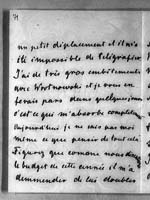 71
un petit déplacement et il m'a
été impossible de télégrafier
J'ai de très gros embêtements
avec Wrotnowski et je vous en
ferais part dans quelques jours
c'est ce qui m'absorbe complètem
Aujourd'hui je ne sais pas moi
même ce que penser de tout cela
Figurez que comme nous dans
le budget de cette année il m'a
demmender de lui doubler